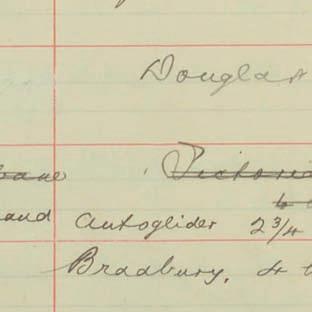 Douglas
Victoria
and Autoglider 2 3/4
Bradbury. 4